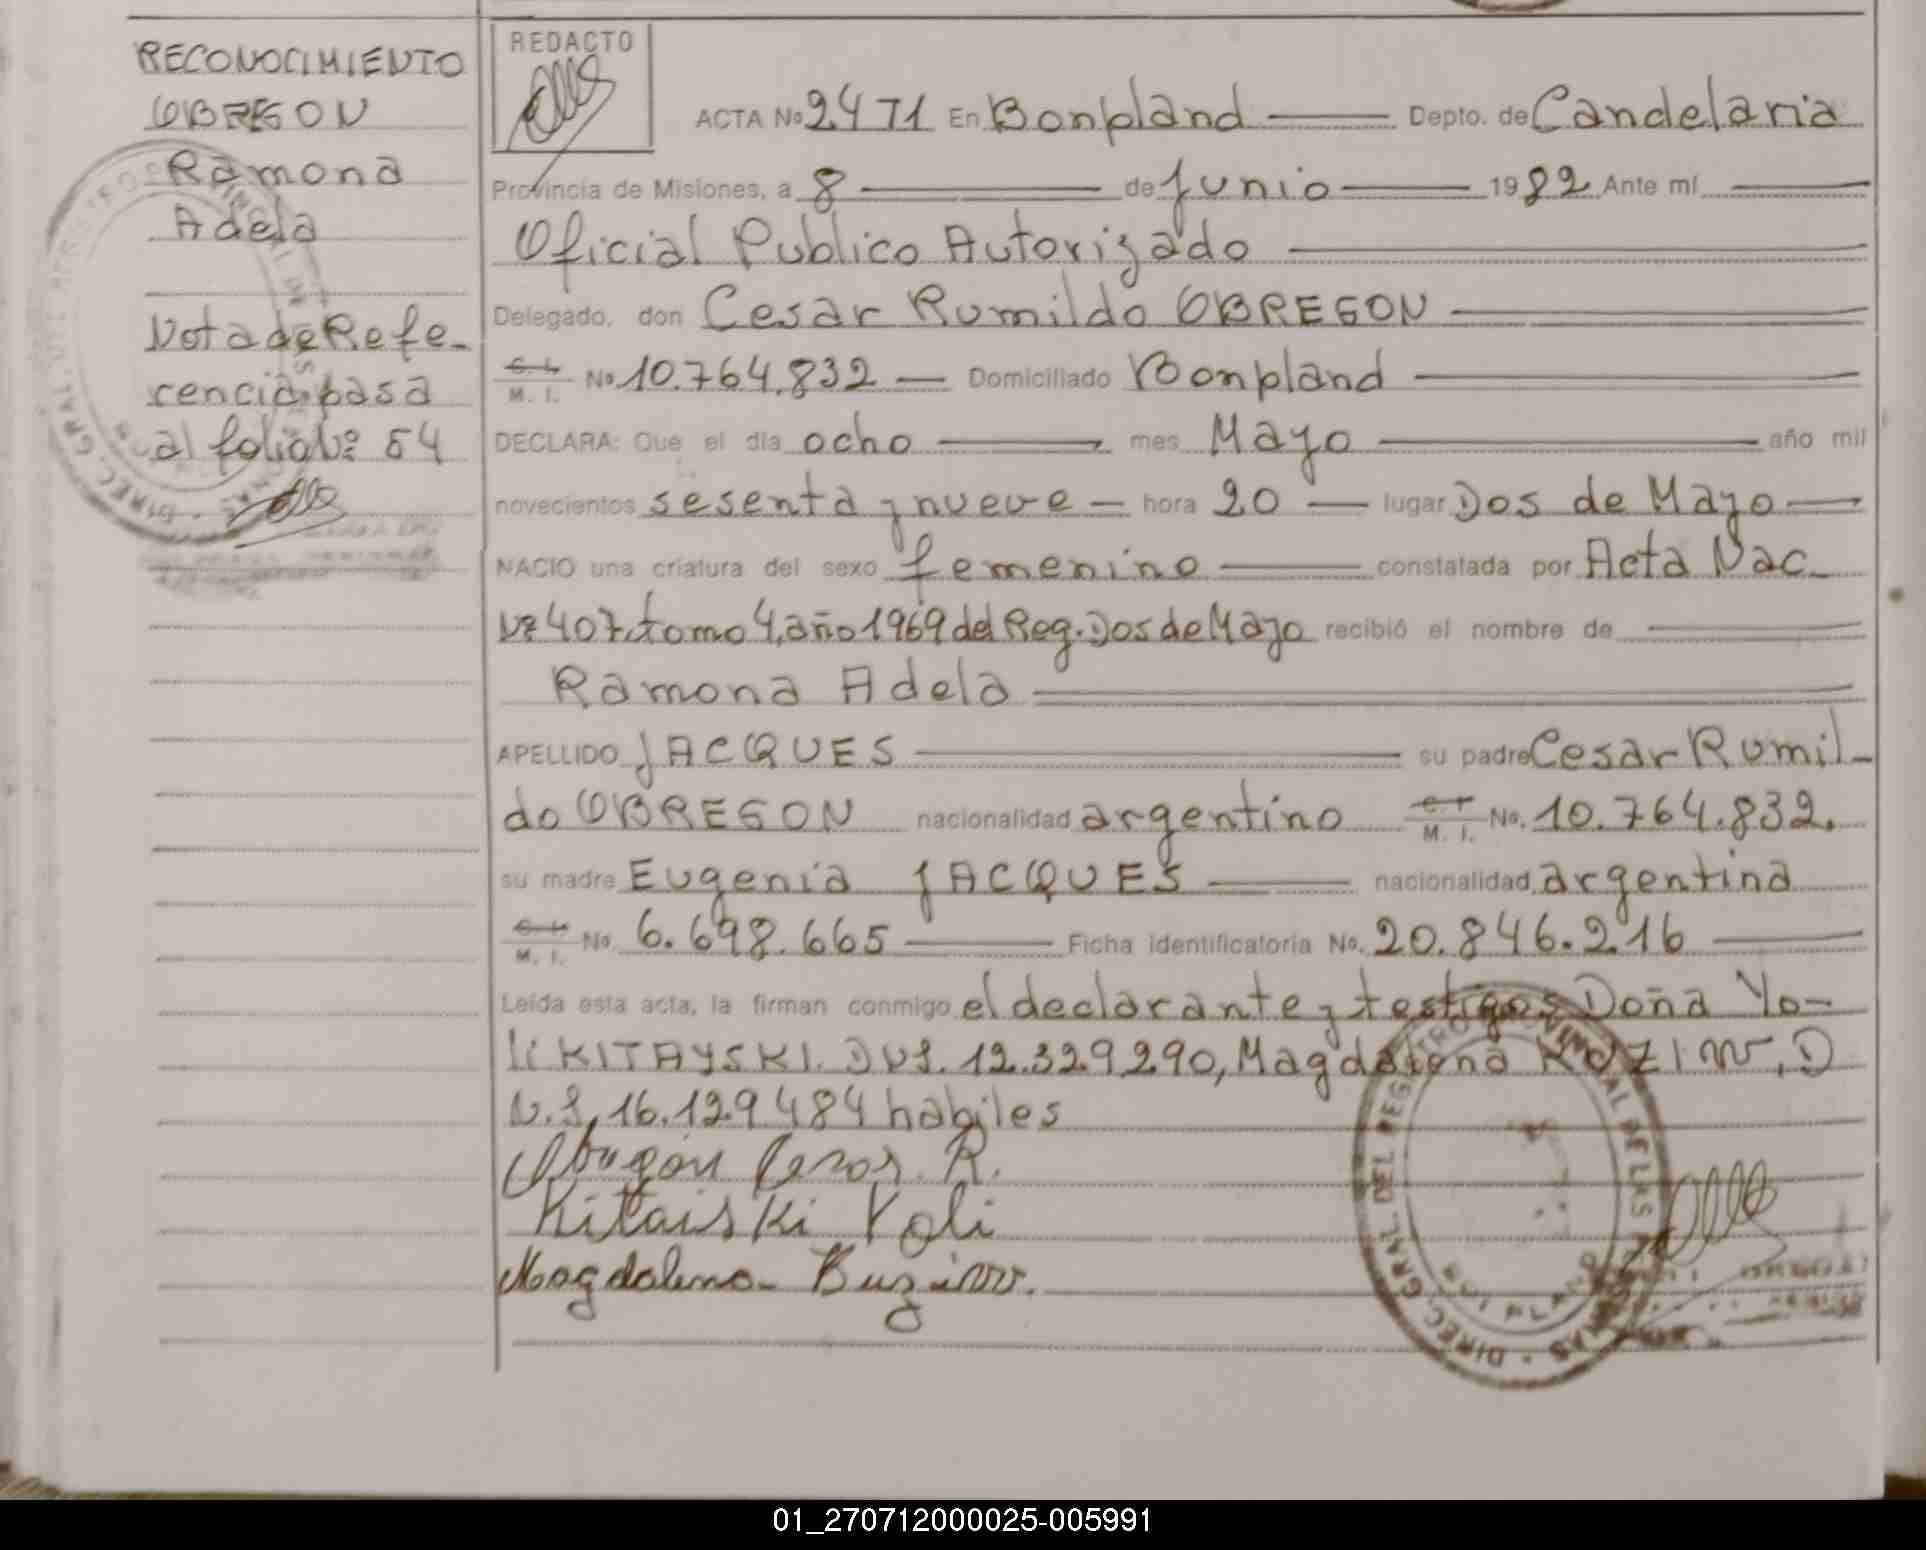 RECONOCIMIENTO
OBREGON
Ramona
Adela
Nota de Refe-
rencia pasa
al folio Nº 54
REDACTO
ACTA No 2471 En Bonpland Depto. de Candelaria
Provincia de Misiones, a 8 de Junio 1982 Ante mí
Oficial Publico Autorizado
Delegado, don Cesar Romildo OBREGON
C. I. M. I. No. 10.764.832 Domiciliado Bonpland
DECLARA: Que el día ocho mes Mayo año mil
novecientos sesenta y nueve hora 20 lugar Dos de Mayo
NACIO una criatura del sexo femenino constatada por Acta Nac.
Nº 407, tomo 4, año 1969 del Reg. Dos de Mayo recibió el nombre de
Ramona Adela
APELLIDO JACQUES su padre Cesar Romil-
do OBREGON nacionalidad argentino C. I. M. I. No. 10.764.832.
su madre Eugenia JACQUES nacionalidad argentina
C. I. M. I. No. 6.698.665 Ficha identificatoria No. 20.846.216
Leída esta acta, la firman conmigo el declarante y testigos Doña Yo-
li KITAYSKI. DNI. 12.329.290, Magdalena , D
N.I, 16.129.484 habiles
Obregon Cesar R.
Kitaiski Yoli
Magdalena
DIREC. GRAL. DEL REGISTRO PROVINCIAL DE LAS PERSONAS
BONPLAND
01_270712000025-005991